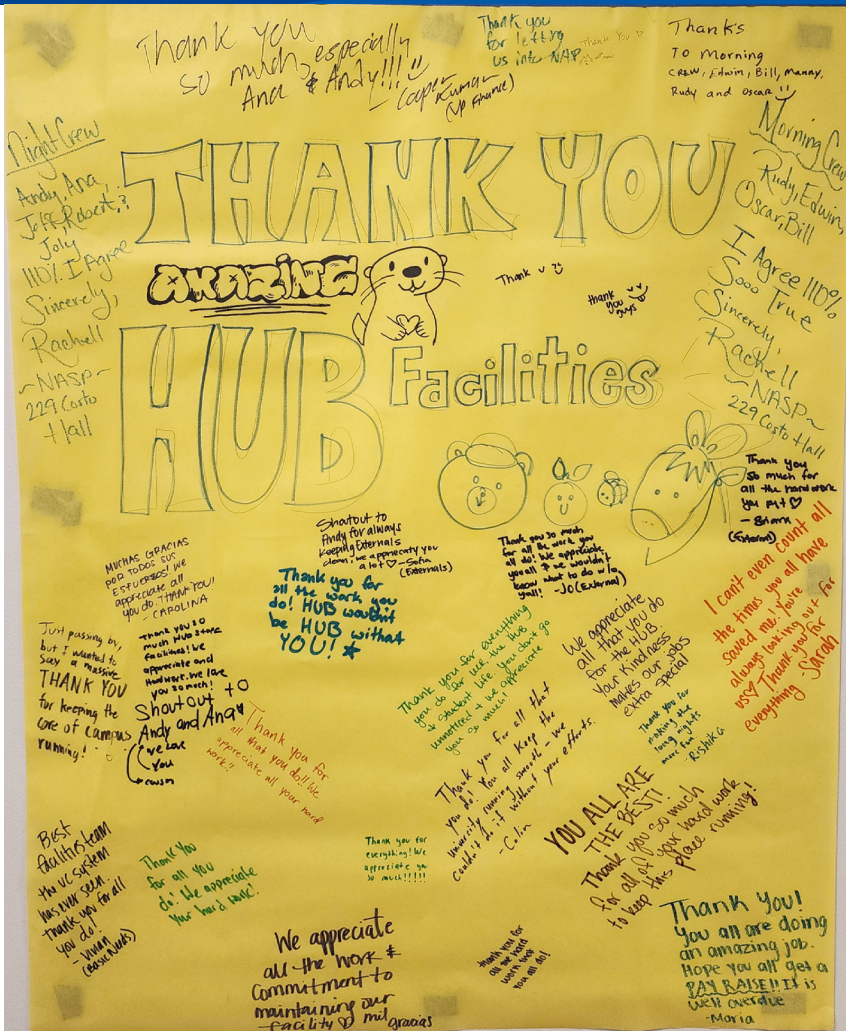 Thank you
so much, especially
Ana & Andy!!! :)
- Cooper
Kumar
(VP Finance)
Thank you
for letting
us into NAP
Thank You
Thanks
TO Morning
CREW, Edwin, Bill, Manny,
Rudy and Oscar :)
Night Crew
Andy, Ana,
Jeff, Robert, &
Joly
110% I Agree
Sincerely,
Rachell
~NASP~
229 Costo
Hall
THANK YOU
AMAZING
HUB
Facilities
Thank u :)
thank
you
guys
Morning Crew
Rudy, Edwin,
Oscar, Bill
I Agree 110%
Sooo True
Sincerely,
Rachell
~NASP~
229 Costo Hall
Thank you
so much for
all the hard work
you put ♡
(Externals)
MUCHAS GRACIAS
POR TODOS SUS
ESFUERZOS! We
appreciate all
you do. THANK YOU!
- CAROLINA
Shoutout to
Andy for always
keeping Externals
clean, we appreciate you
a lot ♡ - Sofia
(Externals)
Thank you for
all the work you
do! HUB wouldn't
be HUB without
YOU! ★
Thank you so much
for all the work you
all do! We appreciate
you all & we wouldn't
know what to do w/o
y'all! - JO (External)
I can't even count all
the times you all have
saved me. You're
always looking out for
us ♡ Thank you for
everything - Sarah
Just passing by,
but I wanted to
say a massive
THANK YOU
for keeping the
core of campus
running!
Thank you so
much HUB
facilities! We
appreciate and
hardwork. We love
you so much!
Shoutout to
Andy and Ana♥
we love
you
Thank you for
all that you do!! We
appreciate all your hard
work!!
Thank you for everything
you do for us, the HUB,
& student life. You don't go
unnoticed & we appreciate
you so much!
We appreciate
all that you do
for the HUB.
Your kindness
makes our jobs
extra special
Thank you for
making the
long nights
more fun
- Rishika
Thank you for all that
you do! You all keep the
university running smooth - we
couldn't do it without your efforts.
- Colin
YOU ALL ARE
THE BEST!
Thank you so much
for all of your hard work
to keep this place running!
Best
facilities team
the UC system
has ever seen.
thank you for all
you do!
- Vivian
(Basic Needs)
Thank You
for all you
do! We appreciate
your hard work!
Thank you for
everything! We
appreciate ya
so much!!!!!
We appreciate
all the work &
commitment to
maintaining our
facility ♡ mil gracias
thank you for
all the hard
work that
you all do!
Thank You!
You all are doing
an amazing job.
Hope you all get a
PAY RAISE!! It is
well overdue
- Maria